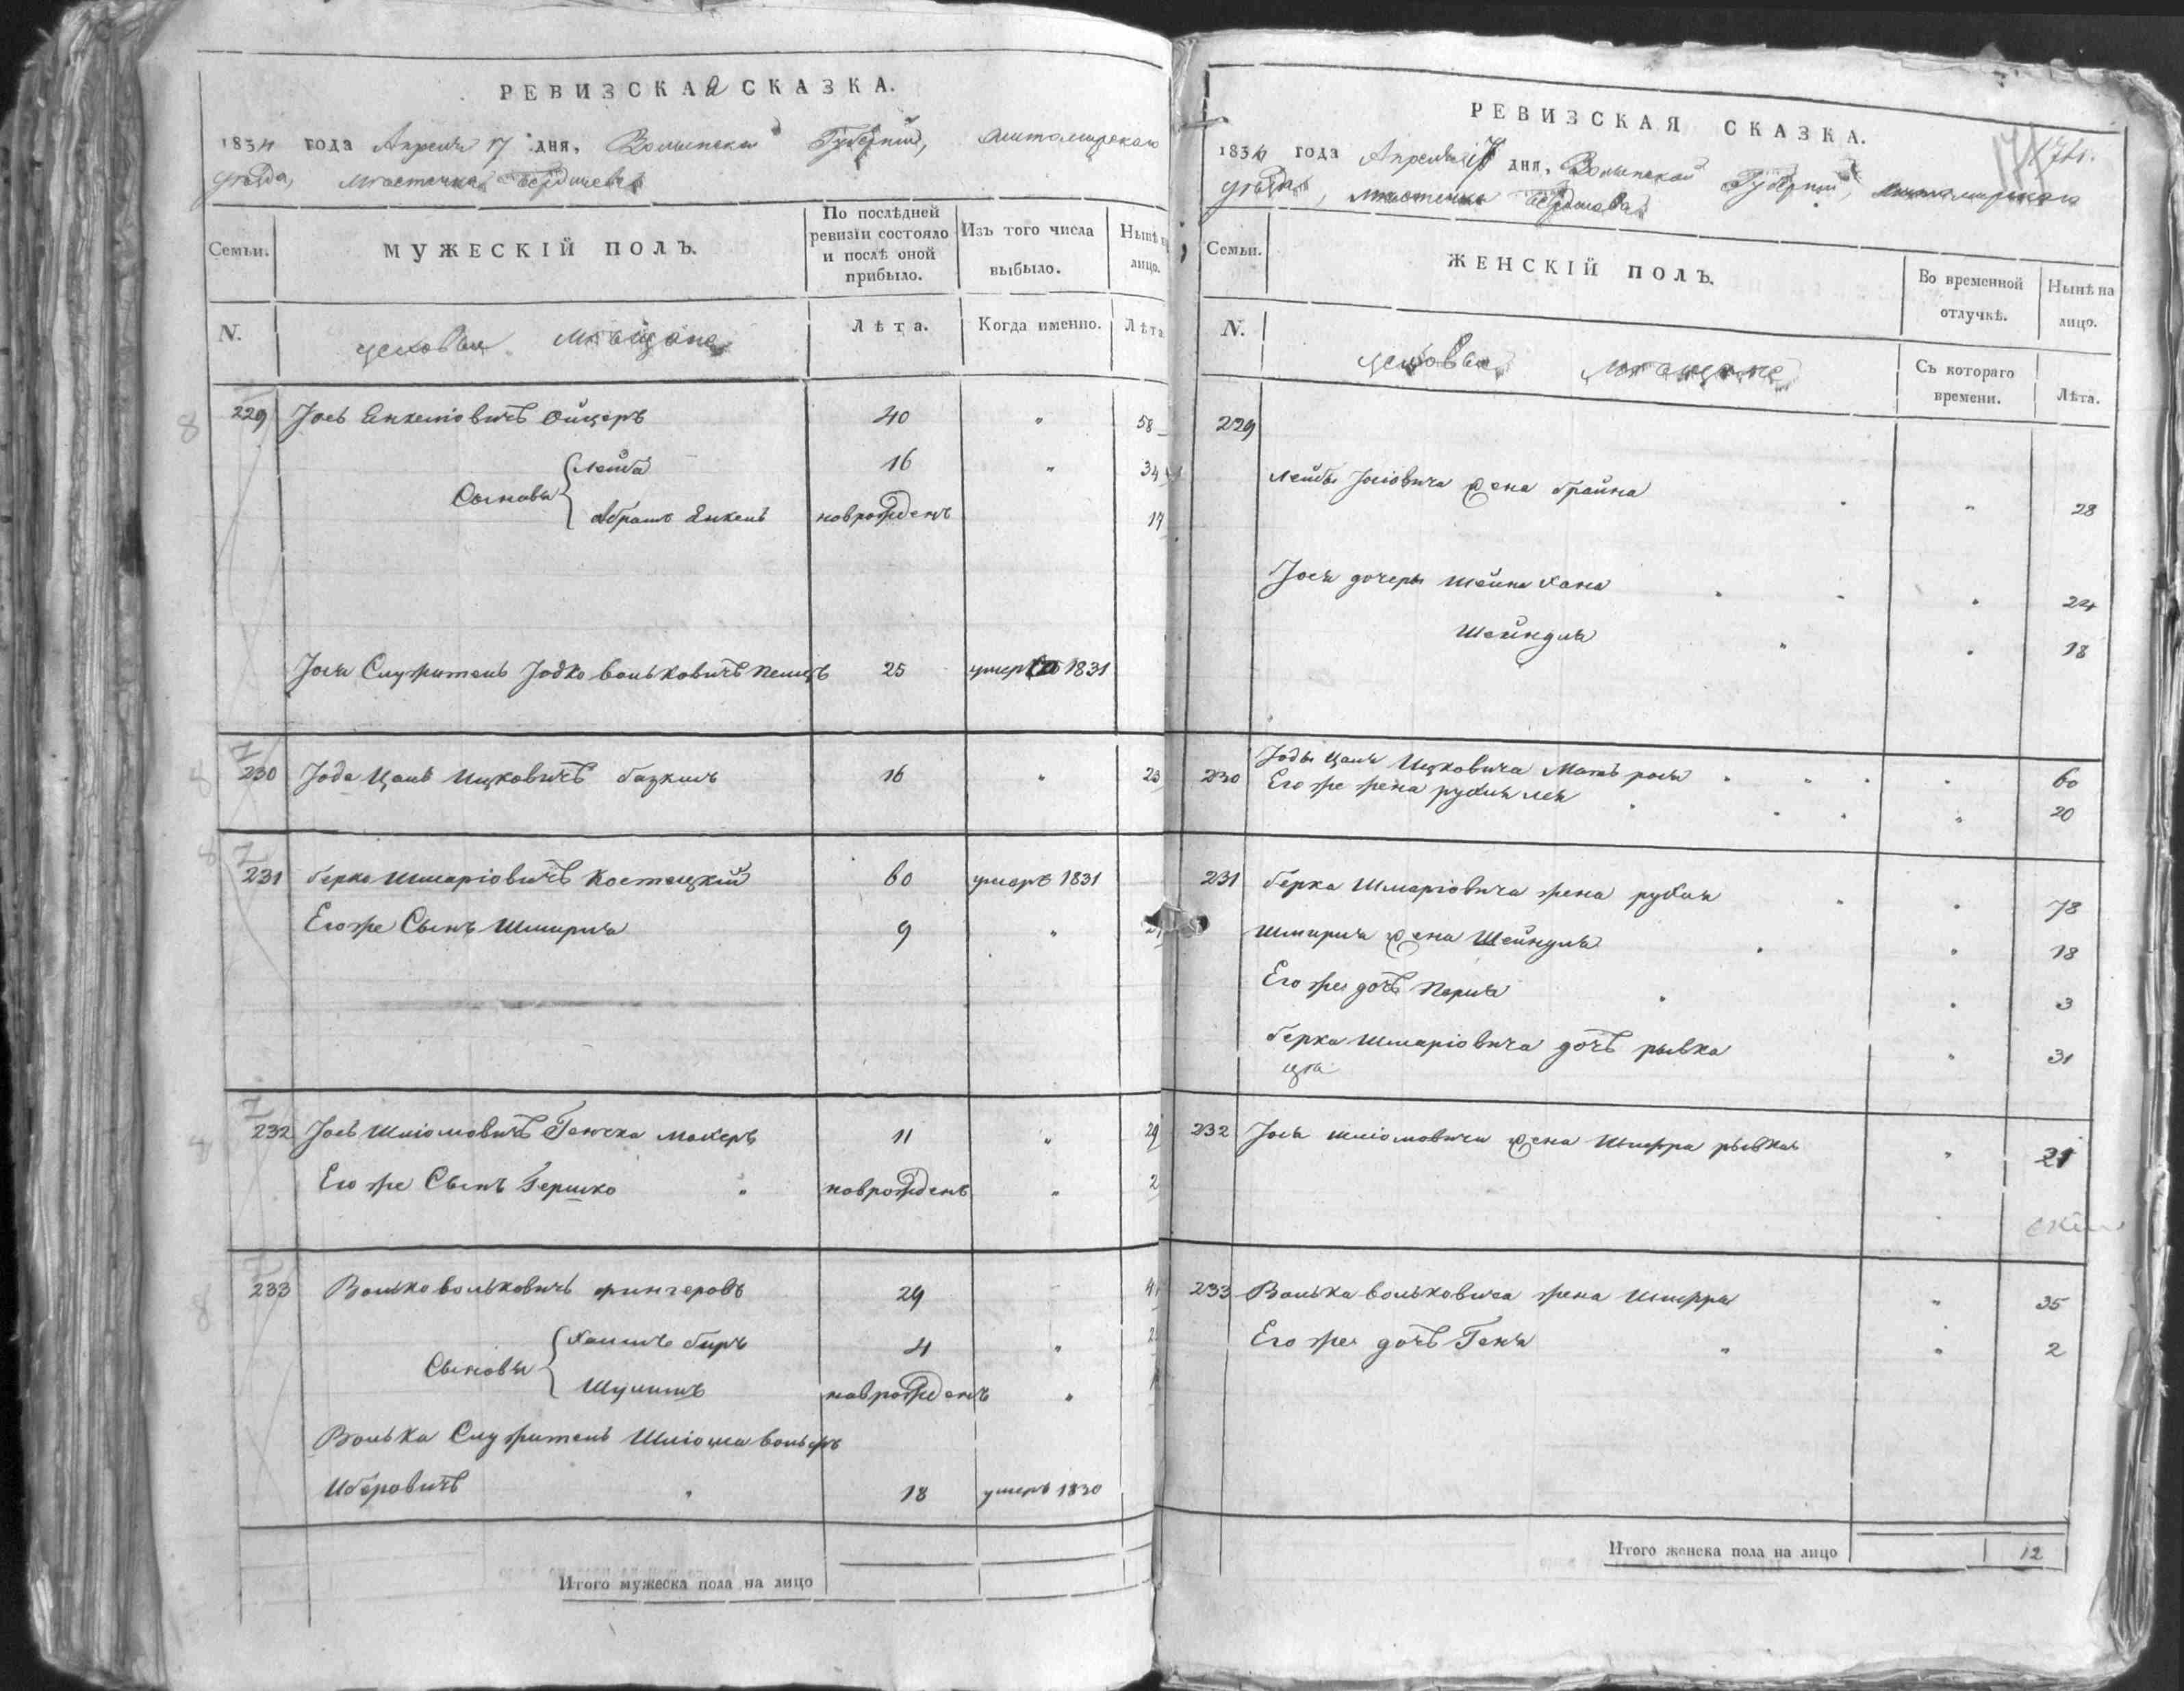 РЕВИЗСКАЯ СКАЗКА.
1834 года Апреля 17 дня, Волынской Губернии, Житомирскаго
уѣзда, мѣстечка Бердичева
Семьи.
МУЖЕСКІЙ ПОЛЪ.
По послѣдней
ревизіи состояло
и послѣ оной
прибыло.
Изъ того числа
выбыло.
Нынѣ на
лицо.
N.
цеховые мѣщане
Лѣта.
Когда именно.
Лѣта
229 Іось Янкелiовичъ Ойцеръ 40 " 58
Сыновья
Лейба 16 " 34
Абрамъ Янкель новрожденъ 17
Іося Служитель Іодко вольковичъ 25 умеръ 1831
230 Іода Цаль Ицковичъ 16 " 23
231 берко Шмаріовичъ Костецкій 60 умеръ 1831
Егоже Сынъ Шмирля 9 "
232 Іось Шліомовичъ 11 " 29
Его же Сынъ Гершко " новрожденъ " 2
233 Волько вольковичъ фингеровъ 29
Сыновья
Хаимъ беръ 4 "
Шулимъ новрожденъ "
Волька Служитель Шліома вольфъ
Иберовичъ " 18 умеръ 1830
Итого мужеска пола на лицо
РЕВИЗСКАЯ СКАЗКА.
1834 года Апреля 17 дня, Волынской Губерніи, Житомирскаго
уѣзда, мѣстечка Бердичева
Семьи.
ЖЕНСКІЙ ПОЛЪ.
Во временной
отлучкѣ.
Нынѣ на
лицо.
N.
цеховые мѣщане
Съ котораго
времени.
Лѣта.
229
Лейбы Іосіовича жена брайна " 28
Іося дочеры Шейна Хана " 24
Шейндля " 18
230 Іоды Цаля Ицковича Мать рося " 60
Его же жена рухля лея " 20
231 берка Шмаріовича жена рухля " 78
Шмирля жена Шейндля " 18
Его же дочь Перля " 3
берка Шмаріовича дочь рывка " 31
232 Іося Шліомовича жена Шифра рывка " 21
233 Волька вольковича жена Шифра " 35
Его же дочь Геня " 2
Итого женска пола на лицо 12